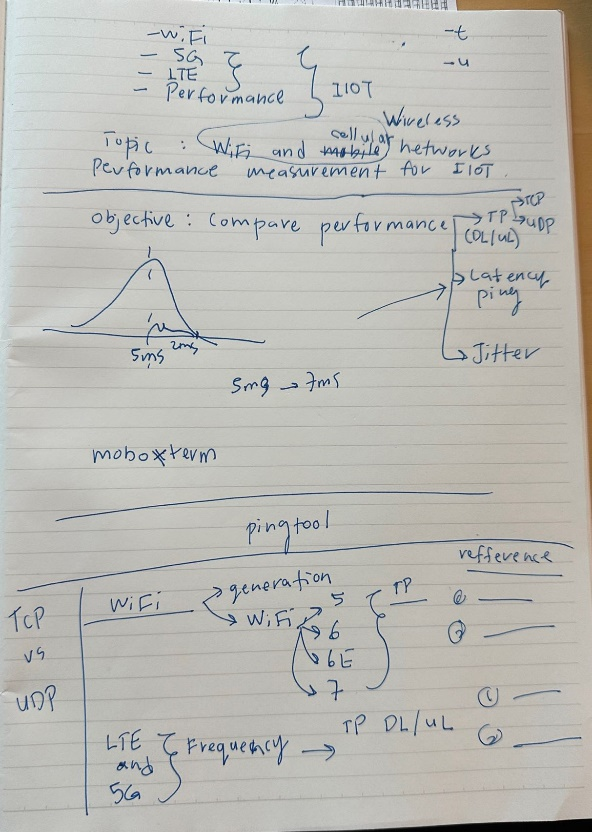 - WiFi
- 5G
- LTE
- Performance
IIOT
-t
-u
Wireless
cellular
Topic : WiFi and mobile networks
Performance measurement for IIOT.
objective : compare performance
TP
TCP
UDP
(DL/UL)
Latency
ping
Jitter
5ms
2ms
5ms → 7ms
moboxterm
pingtool
refference
TCP
vs
UDP
WiFi → generation
→ WiFi → 5
6
6E
7
TP
①
②
LTE
and
5G
Frequency → TP DL/UL
①
②